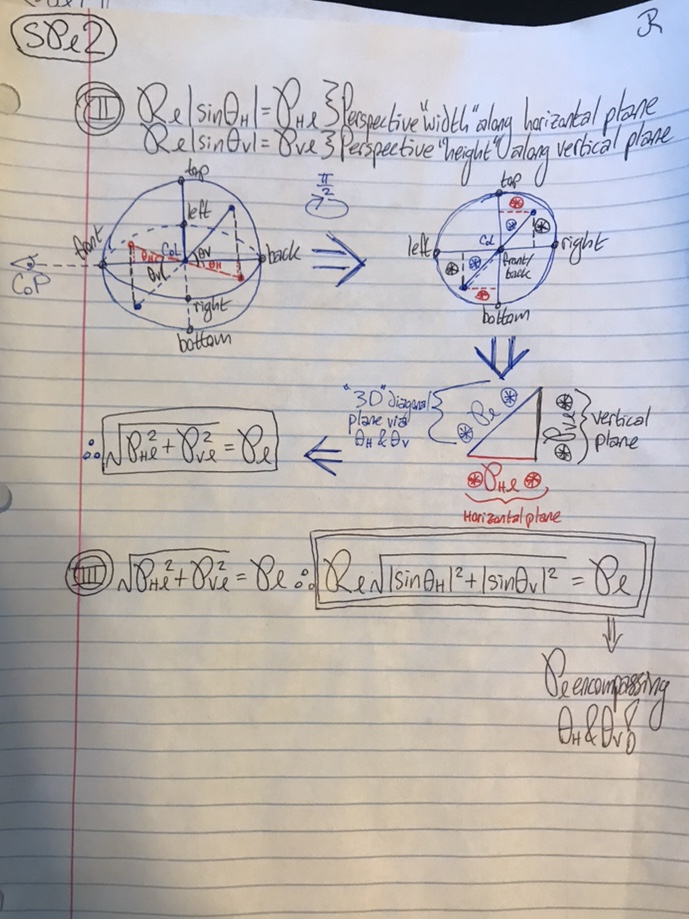 SPe2
R
II Re|sinθH| = PHe } Perspective "width" along horizontal plane
Re|sinθV| = PVe } Perspective "height" along vertical plane
top
left
front
back
CoP
CoL
θH
θV
θH
θV
right
bottom
π/2
top
left
right
CoL
front/
back
bottom
"3D" diagonal
plane via
θH & θV
Pe
PVe
vertical
plane
PHe
Horizontal plane
∴ √PHe² + PVe² = Pe
III √PHe² + PVe² = Pe ∴ Re√|sinθH|² + |sinθV|² = Pe
Pe encompassing
θH & θV